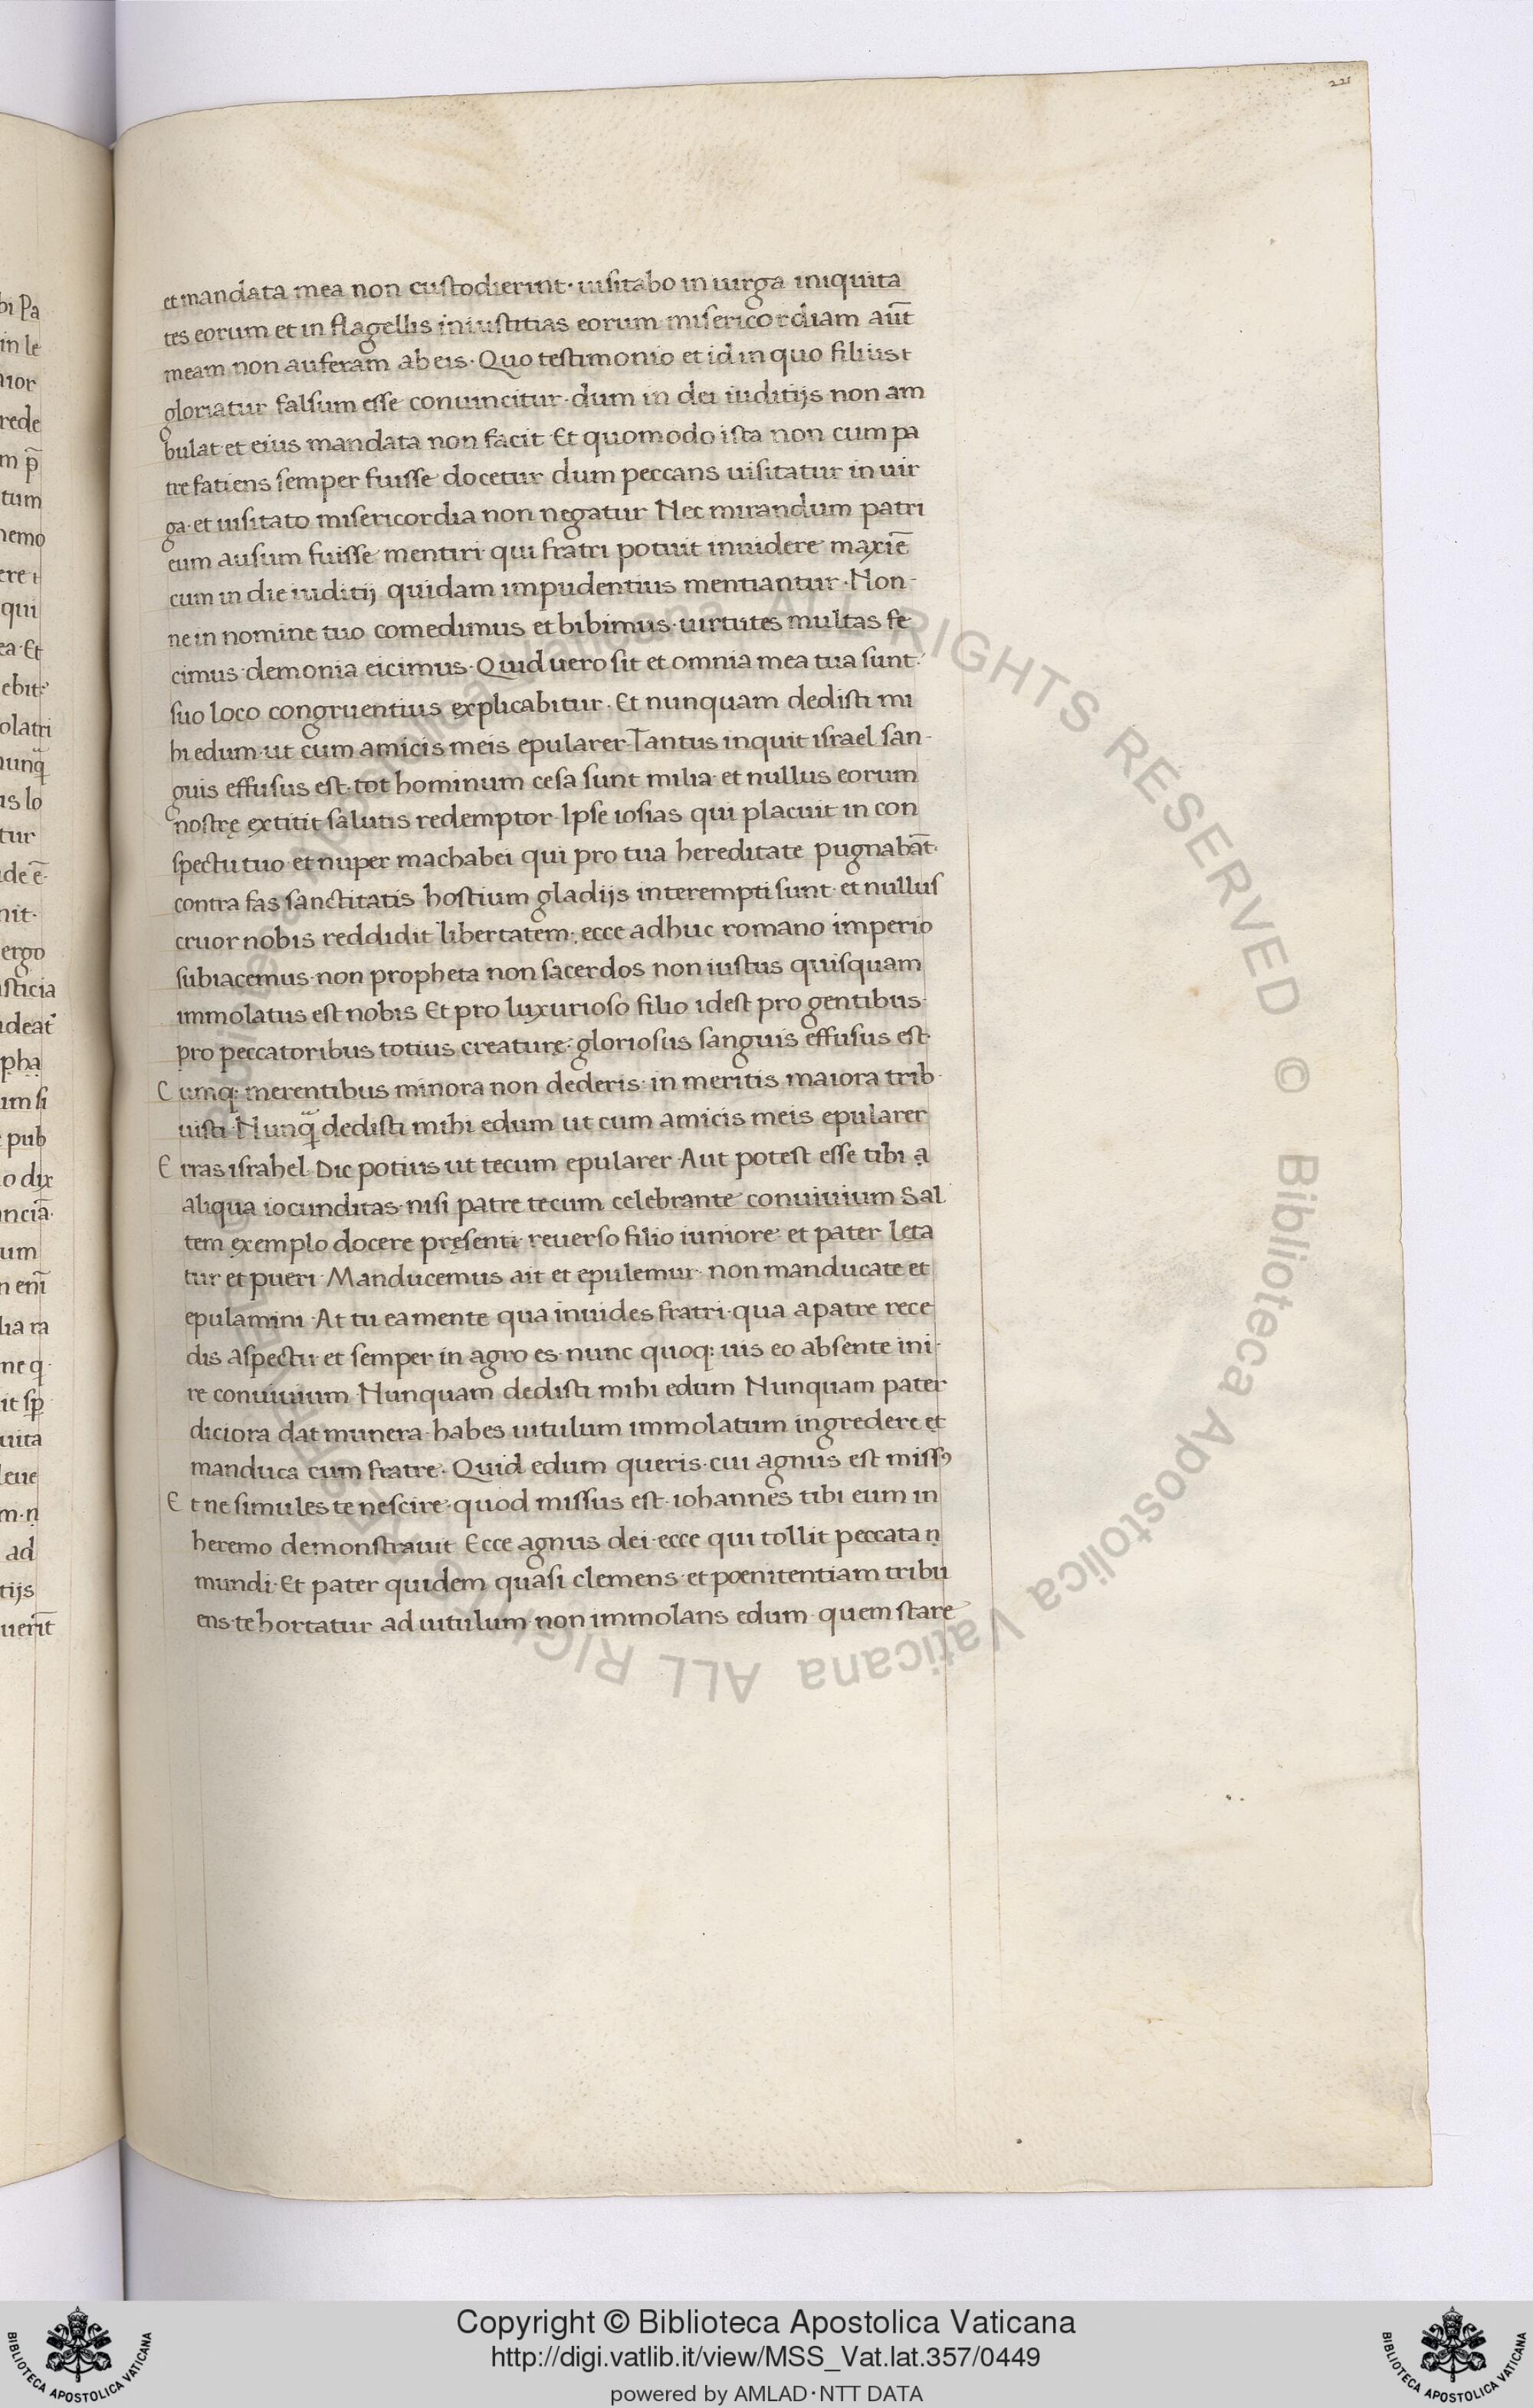 221
et mandata mea non custodierint· uisitabo in uirga iniquita
tes eorum et in flagellis iniustitias eorum misericordiam aut̄
meam non auferam ab eis· Quo testimonio et id in quo filius t
gloriatur falsum esse conuincitur· dum in dei iuditijs non am
bulat et eius mandata non facit Et quomodo ista non cum pa
tre fatiens semper fuisse docetur dum peccans uisitatur in uir
ga· et uisitato misericordia non negatur Nec mirandum patri
eum ausum fuisse mentiri qui fratri potuit inuidere maxiē
cum in die iuditij quidam impudentius mentiantur· Non-
ne in nomine tuo comedimus et bibimus· uirtutes multas fe
cimus· demonia eicimus· Quid uero sit et omnia mea tua sunt·
suo loco congruentius explicabitur· Et nunquam dedisti mi
hi edum· ut cum amicis meis epularer· Tantus inquit israel san-
guis effusus est· tot hominum cesa sunt milia· et nullus eorum
nostrę extitit salutis redemptor· Ipse iosias qui placuit in con
spectu tuo· et nuper machabei qui pro tua hereditate pugnabāt·
contra fas sanctitatis hostium gladijs interempti sunt· et nullus
cruor nobis reddidit libertatem: ecce adhuc romano imperio
subiacemus· non propheta non sacerdos non iustus quisquam
immolatus est nobis Et pro luxurioso filio idest pro gentibus·
pro peccatoribus totius creaturę· gloriosus sanguis effusus est·
C umq: merentibus minora non dederis: in meritis maiora trib·
uisti· Nunq̄ dedisti mihi edum ut cum amicis meis epularer
E rras israhel· Dic potius ut tecum epularer· Aut potest esse tibi ạ
aliqua iocunditas· nisi patre tecum celebrante conuiuium Sal
tem exemplo docere pręsenti· reuerso filio iuniore· et pater leta
tur et pueri· Manducemus ait et epulemur· non manducate et
epulamini· At tu ea mente qua inuides fratri· qua a patre rece
dis aspectu· et semper in agro es· nunc quoq: uis eo absente ini-
re conuiuium Nunquam dedisti mihi edum Nunquam pater
diciora dat munera· habes uitulum immolatum ingredere et
manduca cum fratre· Quid edum queris· cui agnus est miss9
E t ne simules te nescire· quod missus est· iohannes tibi eum in
heremo demonstrauit Ecce agnus dei· ecce qui tollit peccata ṇ
mundi· Et pater quidem quasi clemens· et poenitentiam tribu
ens· te hortatur ad uitulum· non immolans edum· quem stare
Copyright © Biblioteca Apostolica Vaticana
http://digi.vatlib.it/view/MSS_Vat.lat.357/0449
powered by AMLAD·NTT DATA
BIBLIOTECA APOSTOLICA VATICANA
BIBLIOTECA APOSTOLICA VATICANA